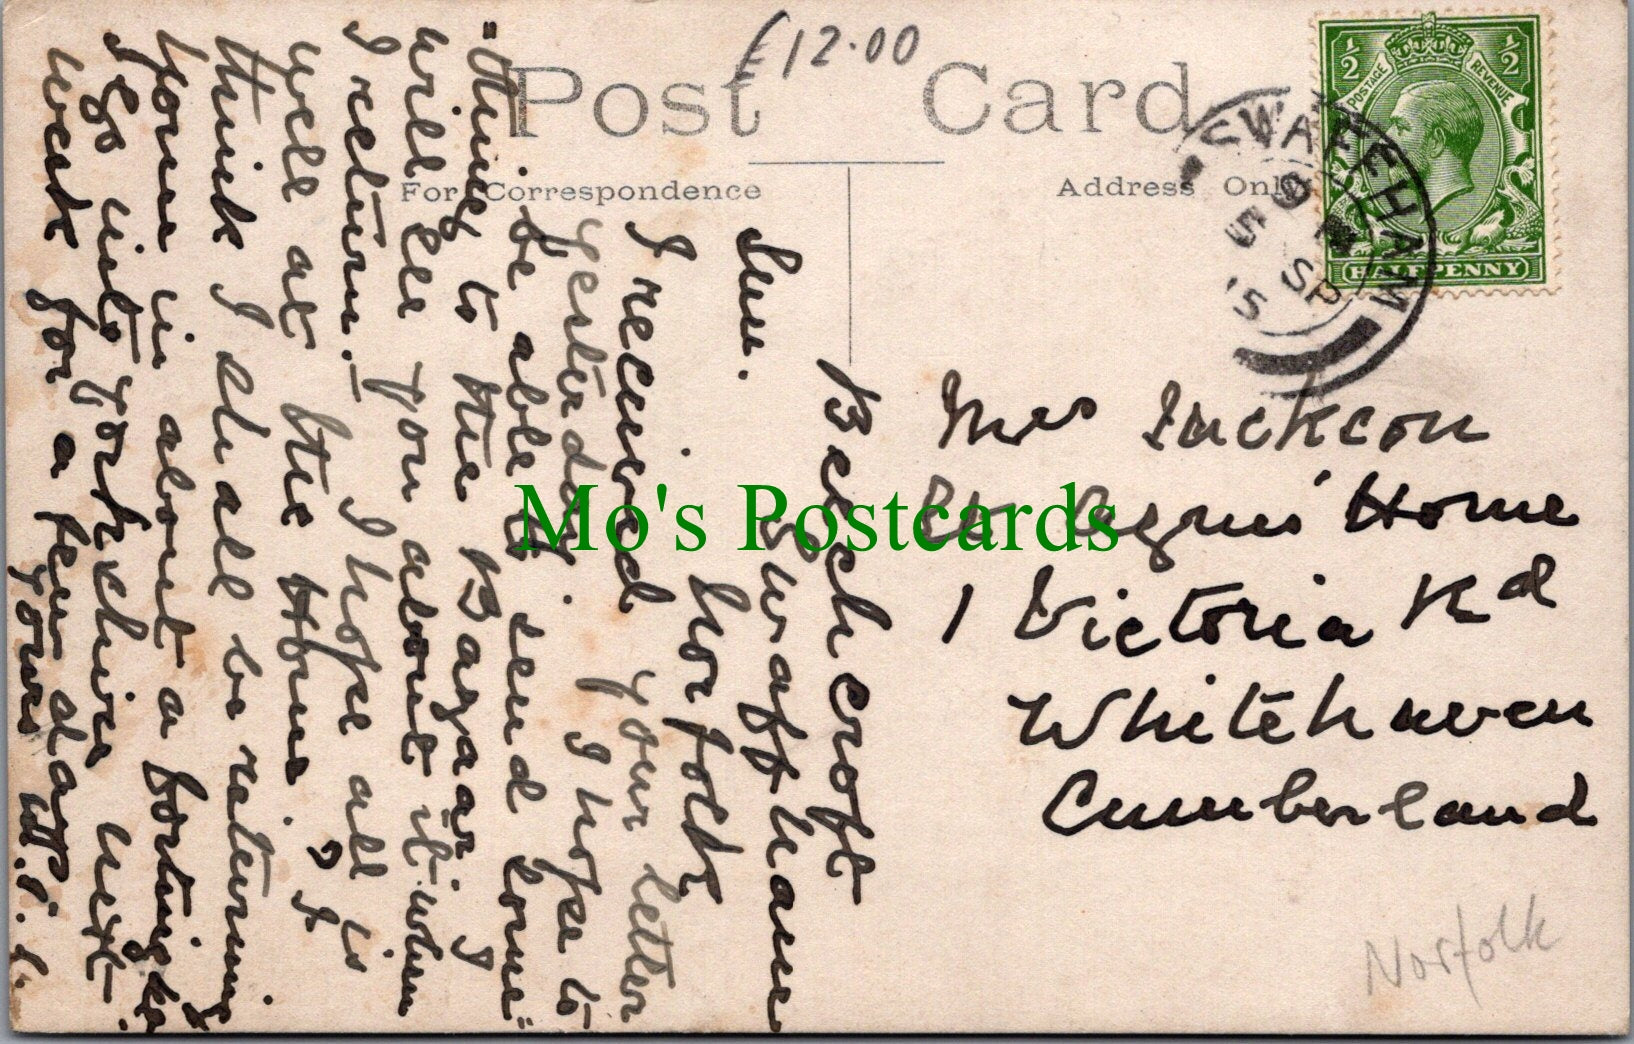 £12.00
Post Card
For Correspondence
Address Only
½ ½
POSTAGE REVENUE
HALFPENNY
SWAFFHAM
SP
15
Mrs Jackson
St Agnes' Home
1 Victoria Rd
Whitehaven
Cumberland
Norfolk
Mo's Postcards
Beech croft
Swaffham
Norfolk
Sun.
I received your letter
yesterday. I hope to
be able to send some
"things" to the Bazaar. I
will see you about it when
I return. I hope all is
well at the Home, I
think I shall be returning
home in about a fortnight.
I go into Yorkshire next
week for a few days.
Yours